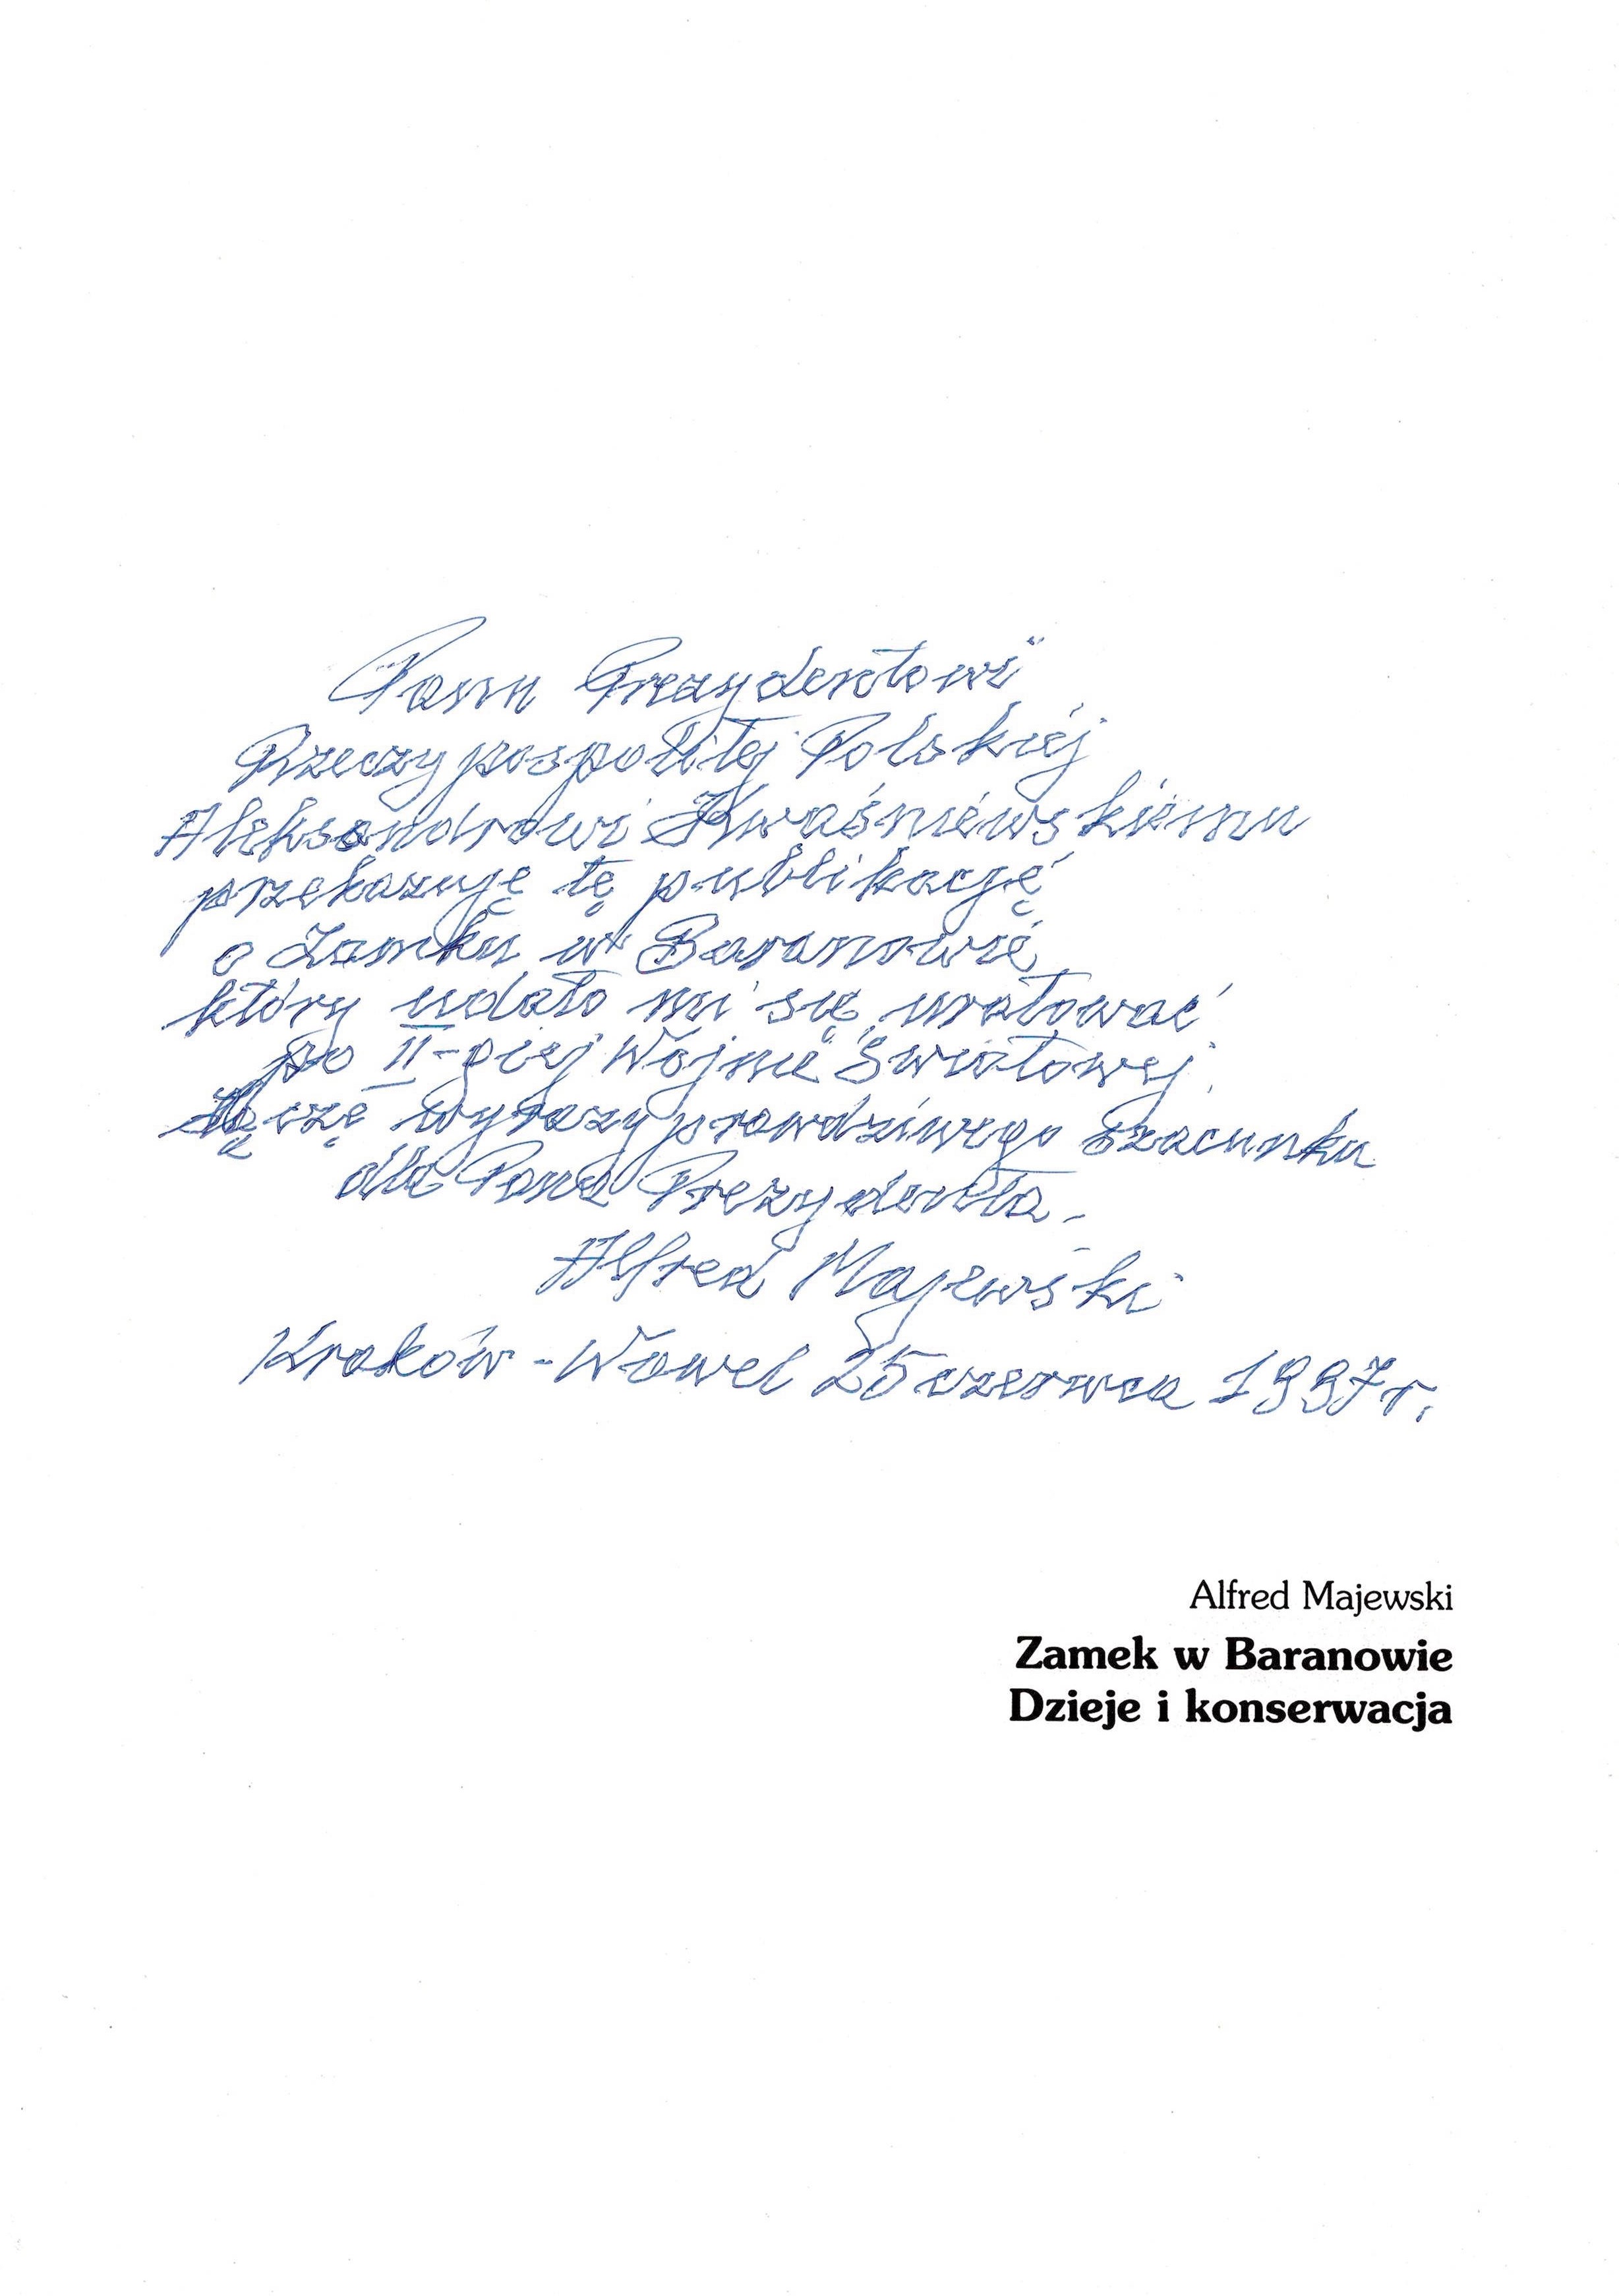 Panu Prezydentowi
Rzeczypospolitej Polskiej
Aleksandrowi Kwaśniewskiemu
przekazuję tę publikację
o Zamku w Baranowie,
który udało mi się uratować
po II-giej Wojnie Światowej.
Łączę wyrazy prawdziwego szacunku
dla Pana Prezydenta -
Alfred Majewski
Kraków - Wawel 25 czerwca 1997 r.
Alfred Majewski
Zamek w Baranowie
Dzieje i konserwacja